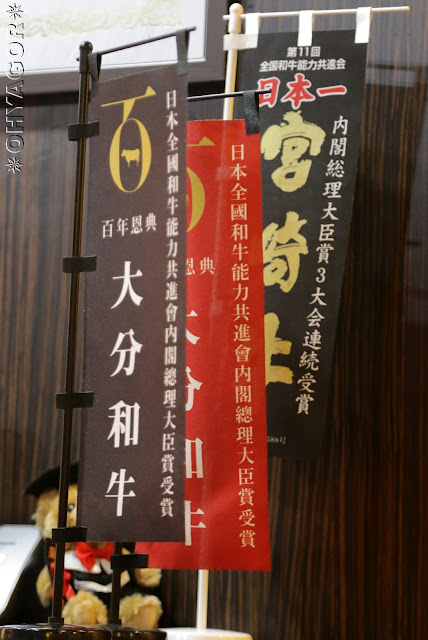 *OHYAGOR*
百
百年恩典
大分和牛
日本全國和牛能力共進會內閣總理大臣賞受賞
恩典
和牛
日本全國和牛能力共進會內閣總理大臣賞受賞
第11回
全国和牛能力共進会
日本一
宮崎
内閣総理大臣賞3大会連続受賞